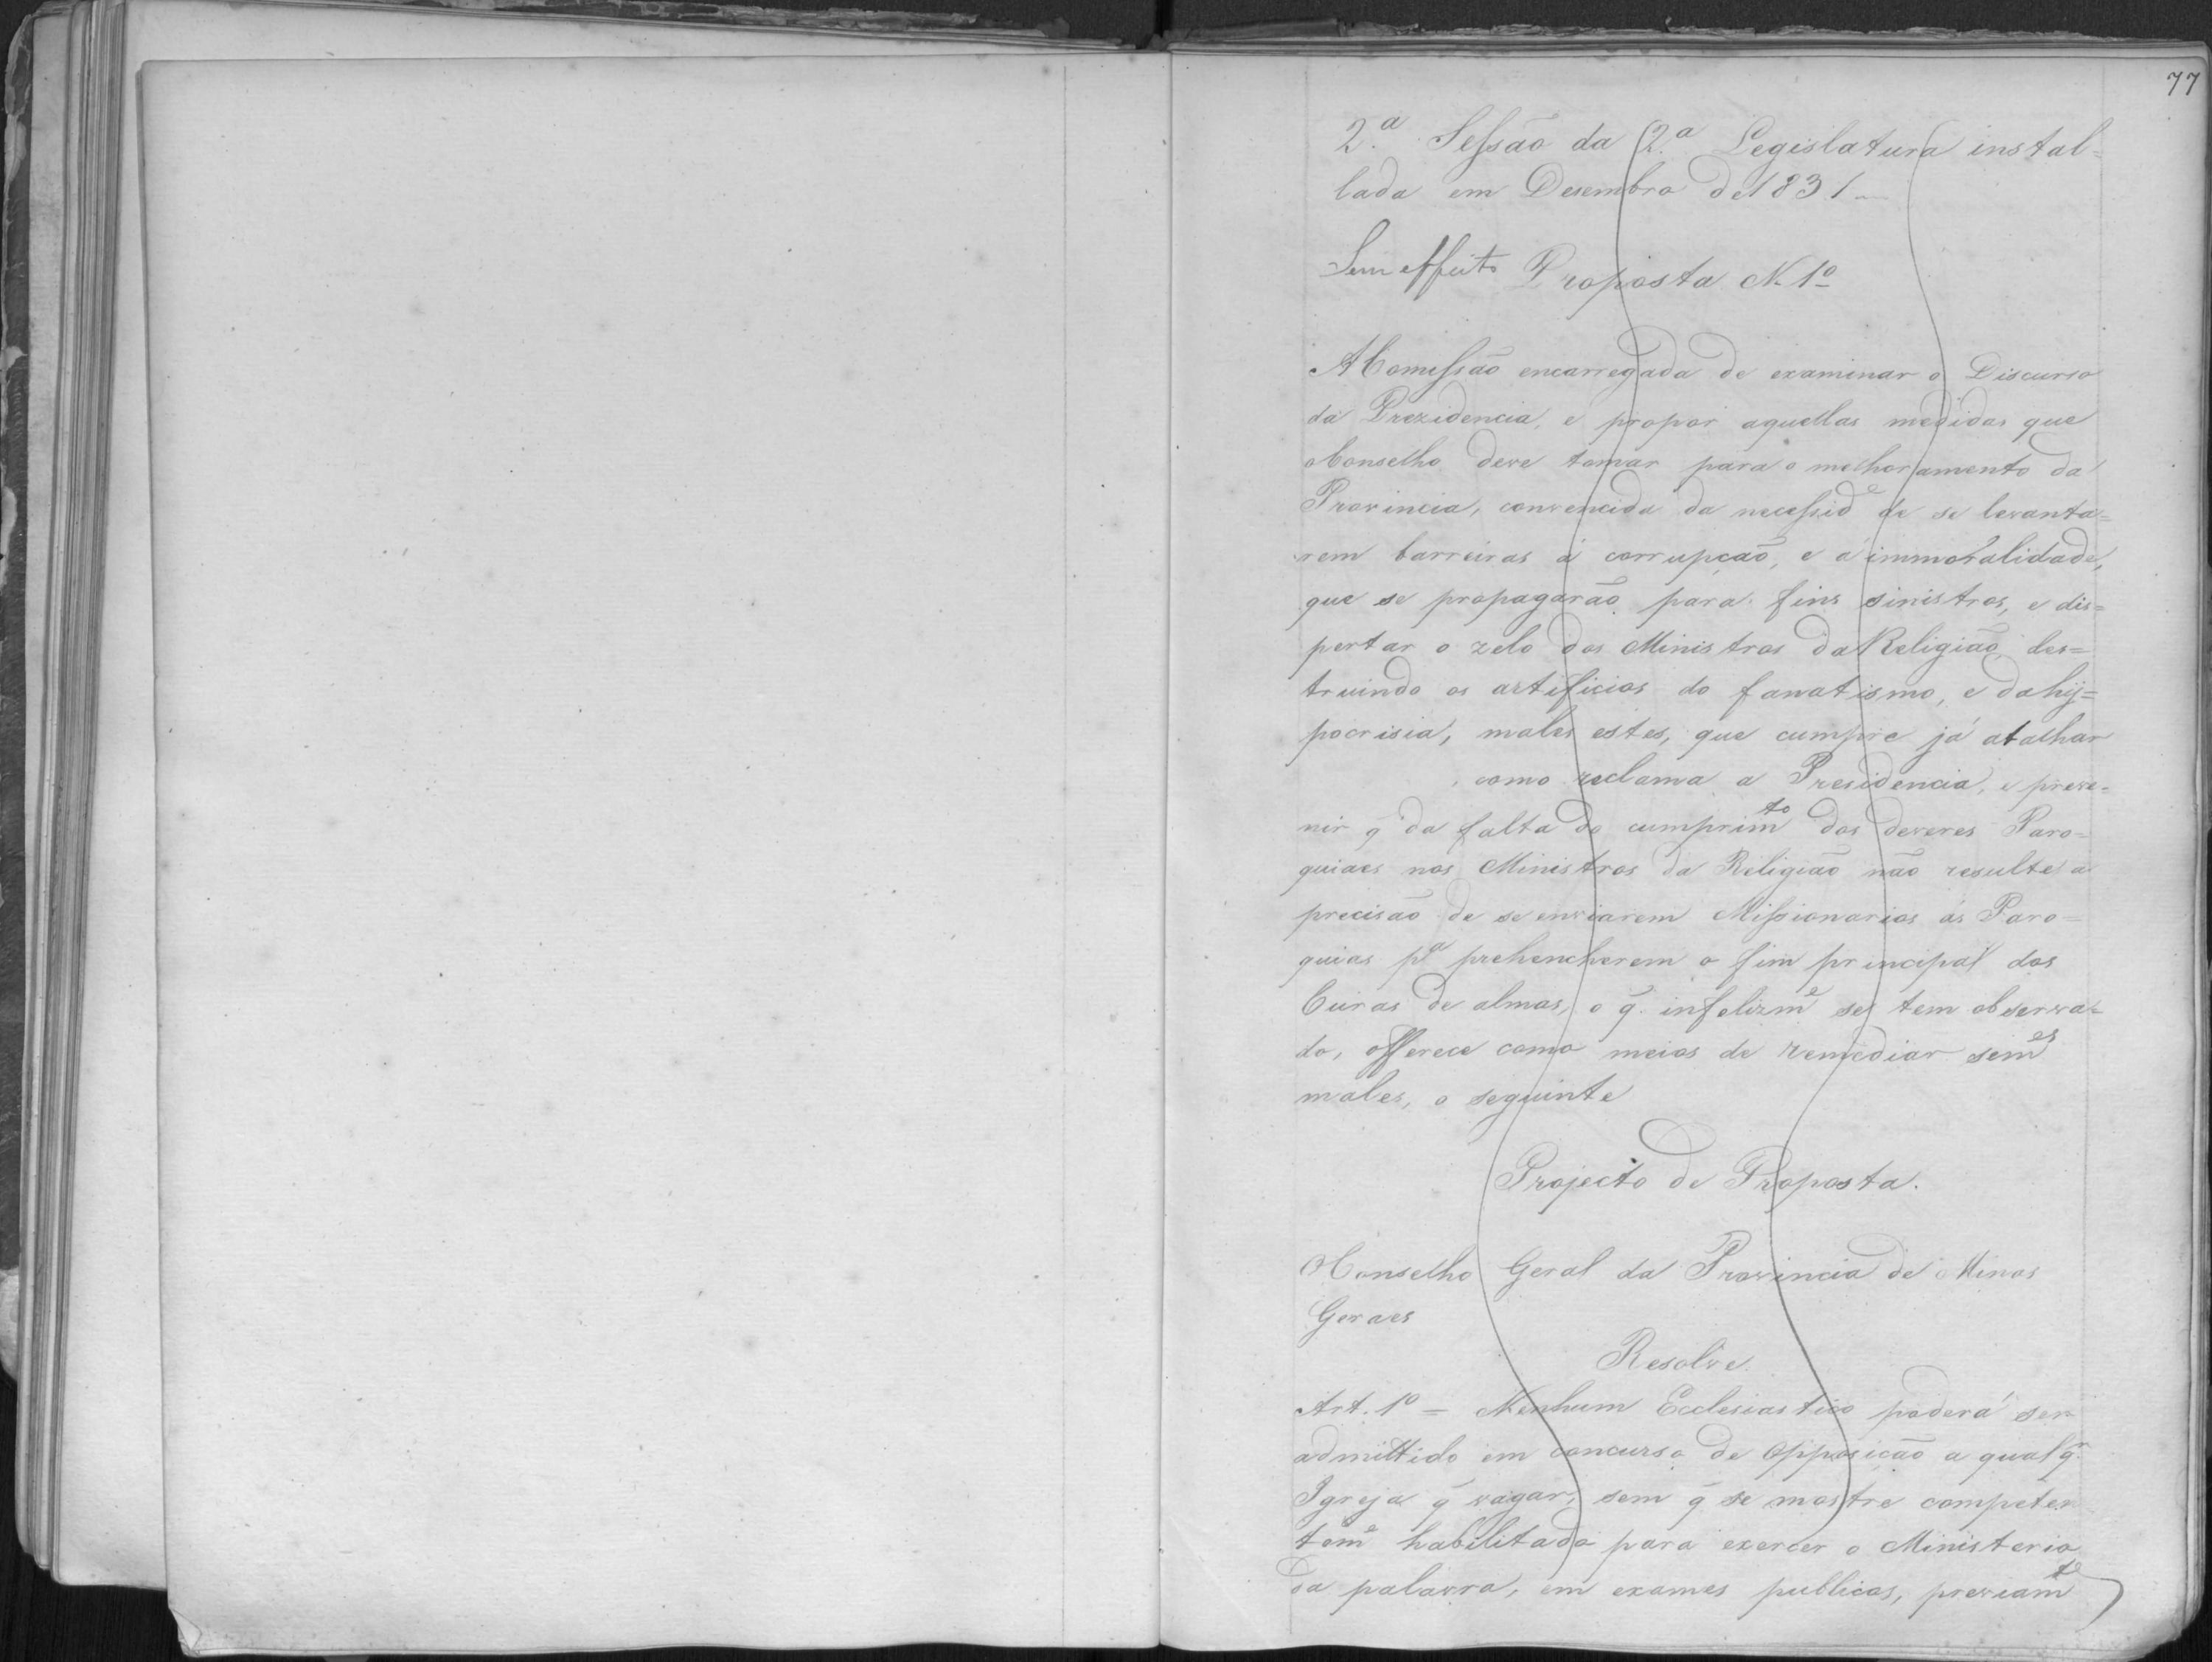 77
2.ª Sessão da 2.ª Legislatura instal=
lada em Desembro de 1831
Sem effeito Proposta N. 1º
A Comissão encarregada de examinar o Discurso
da Prezidencia, e propor aquellas medidas que
o Conselho deve tomar para o melhoramento da
Provincia, convencida da necessidᵉ de se levanta=
rem barreiras á corrupção, e á immoralidade,
que se propagarão para fins sinistros, e dis=
pertar o zelo dos Ministros da Religião, des=
truindo os artificios do fanatismo, e da hy=
pocrisia, males estes, que cumpre já atalhar
, como reclama a Presidencia, e preve=
nir q̃ da falta do cumprimᵗᵒ dos deveres Paro=
quiaes nos Ministros da Religião não resulte a
precisão de se enviarem Missionarios ás Paro=
quias pª prehencherem o fim principal dos
Curas de almas, o q̃ infelizmᵉ se tem observa=
do, offerece como meios de remediar semᵉˢ
males, o seguinte
Projecto de Proposta.
O Conselho Geral da Provincia de Minas
Geraes
Resolve.
Art. 1º = Nenhum Ecclesiastico poderá ser
admittido em concurso de Opposicão a qualqʳ
Igreja q̃ vagar, sem q̃ se mostre competen
temᵉ habilitado para exercer o Ministerio
da palavra, em exames publicos, previamᵗᵉ